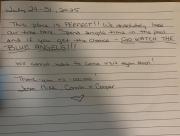 July 27-31, 2023
This place is PERFECT!! We absolutely love
our time here. Spend ample time in the pool
and if you get the chance - GO WATCH THE
BLUE ANGELS!!!
We cannot wait to come visit again soon!
Thank you
Jenn, Mike, Camdin & Cooper